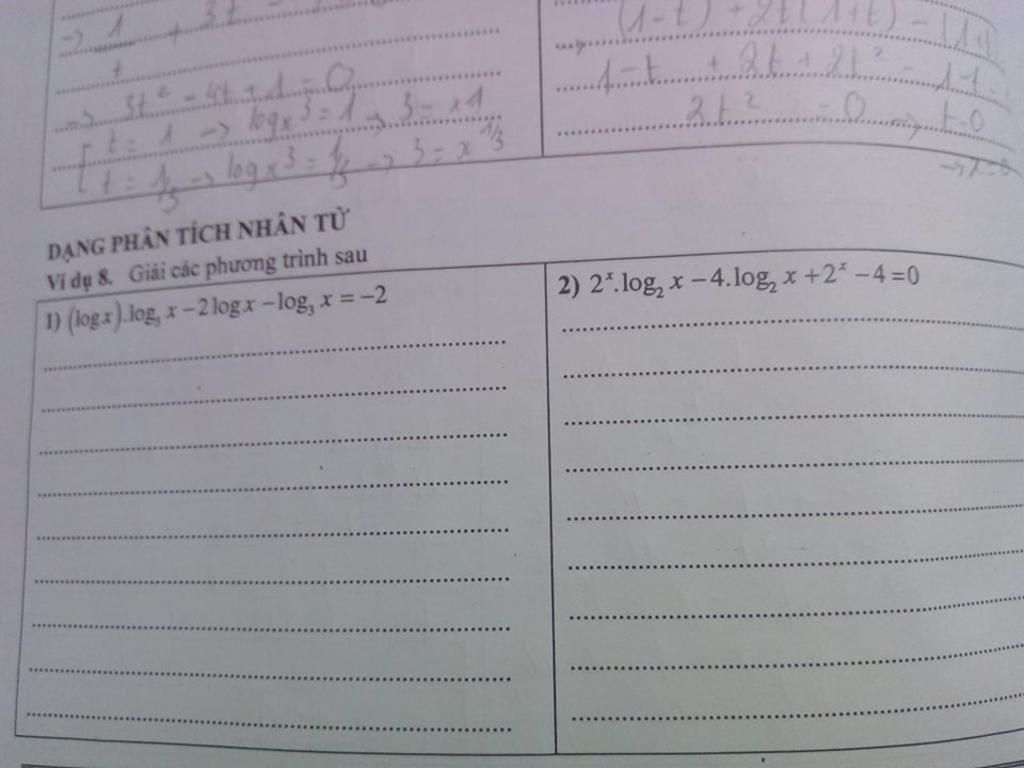 → 1 + 3t
t
→ 3t² - 4t + 1 = 0
t = 1 → logₓ3 = 1 → 3 = x^1
t = 1/3 → logₓ3 = 1/3 → 3 = x^1/3
→ (1-t) + 2t(1+t) -
1-t + 2t + 2t² - 1-t
2t² = 0 → t=0
DẠNG PHÂN TÍCH NHÂN TỬ
Ví dụ 8. Giải các phương trình sau
1) (log x).log₅ x − 2 log x − log₃ x = −2
2) 2ˣ.log₂ x − 4.log₂ x + 2ˣ − 4 = 0